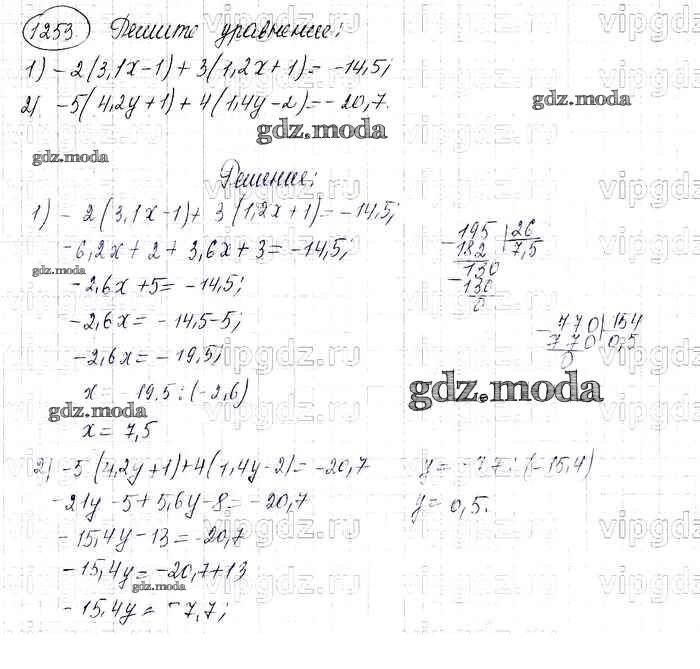 1253. Решите уравнение:
1) -2(3,1x-1)+3(1,2x+1)=-14,5;
2) -5(4,2y+1)+4(1,4y-2)=-20,7.
gdz.moda
gdz.moda
gdz.moda
Решение:
1) -2(3,1x-1)+3(1,2x+1)=-14,5;
-6,2x+2+3,6x+3=-14,5;
gdz.moda
-2,6x+5=-14,5;
-2,6x=-14,5-5;
-2,6x=-19,5;
x=-19,5:(-2,6)
gdz.moda
x=7,5
195 26
182 7,5
130
130
0
770 154
770 0,5
0
gdz.moda
2) -5(4,2y+1)+4(1,4y-2)=-20,7
-21y-5+5,6y-8=-20,7
-15,4y-13=-20,7
-15,4y=-20,7+13
gdz.moda
-15,4y=-7,7;
y=-7,7:(-15,4)
y=0,5.
vipgdz.ru
vipgdz.ru
vipgdz.ru
vipgdz.ru
vipgdz.ru
vipgdz.ru